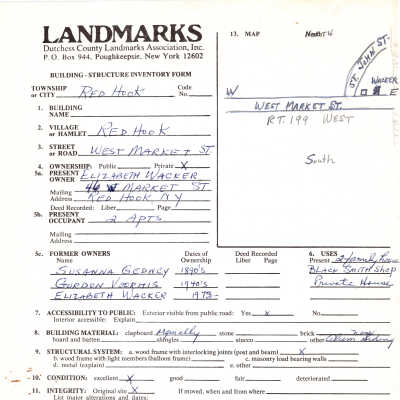 LANDMARKS
Dutchess County Landmarks Association, Inc.
P. O. Box 944, Poughkeepsie, New York 12602
BUILDING - STRUCTURE INVENTORY FORM
TOWNSHIP or CITY RED HOOK Code No.
1. BUILDING NAME
2. VILLAGE or HAMLET RED HOOK
3. STREET or ROAD WEST MARKET ST.
4. OWNERSHIP: Public Private X
5a. PRESENT OWNER ELIZABETH WACKER
Mailing Address 46 W MARKET ST
RED HOOK, NY
Deed Recorded: Liber Page
5b. PRESENT OCCUPANT 2 Apts.
Mailing Address
5c. FORMER OWNERS Name Dates of Ownership Deed Recorded Liber Page
SUSANNA GEDNEY 1890's
GORDON VOORHIS 1940's
ELIZABETH WACKER 1975-
6. USES
Present 2 family house
BLACK SMITH SHOP
Private House
7. ACCESSIBILITY TO PUBLIC: Exterior visible from public road: Yes X No
Interior accessible: Explain
8. BUILDING MATERIAL: clapboard stone brick
board and batten shingles stucco other siding
9. STRUCTURAL SYSTEM: a. wood frame with interlocking joints (post and beam) X
b. wood frame with light members (balloon frame) c. masonry load bearing walls
d. metal (explain) e. other
10. CONDITION: excellent X good fair deteriorated
11. INTEGRITY: Original site X If moved, when and from where
List major alterations and dates:
13. MAP
ST. JOHN ST.
WACKER
W E
WEST MARKET ST.
RT. 199 WEST
South